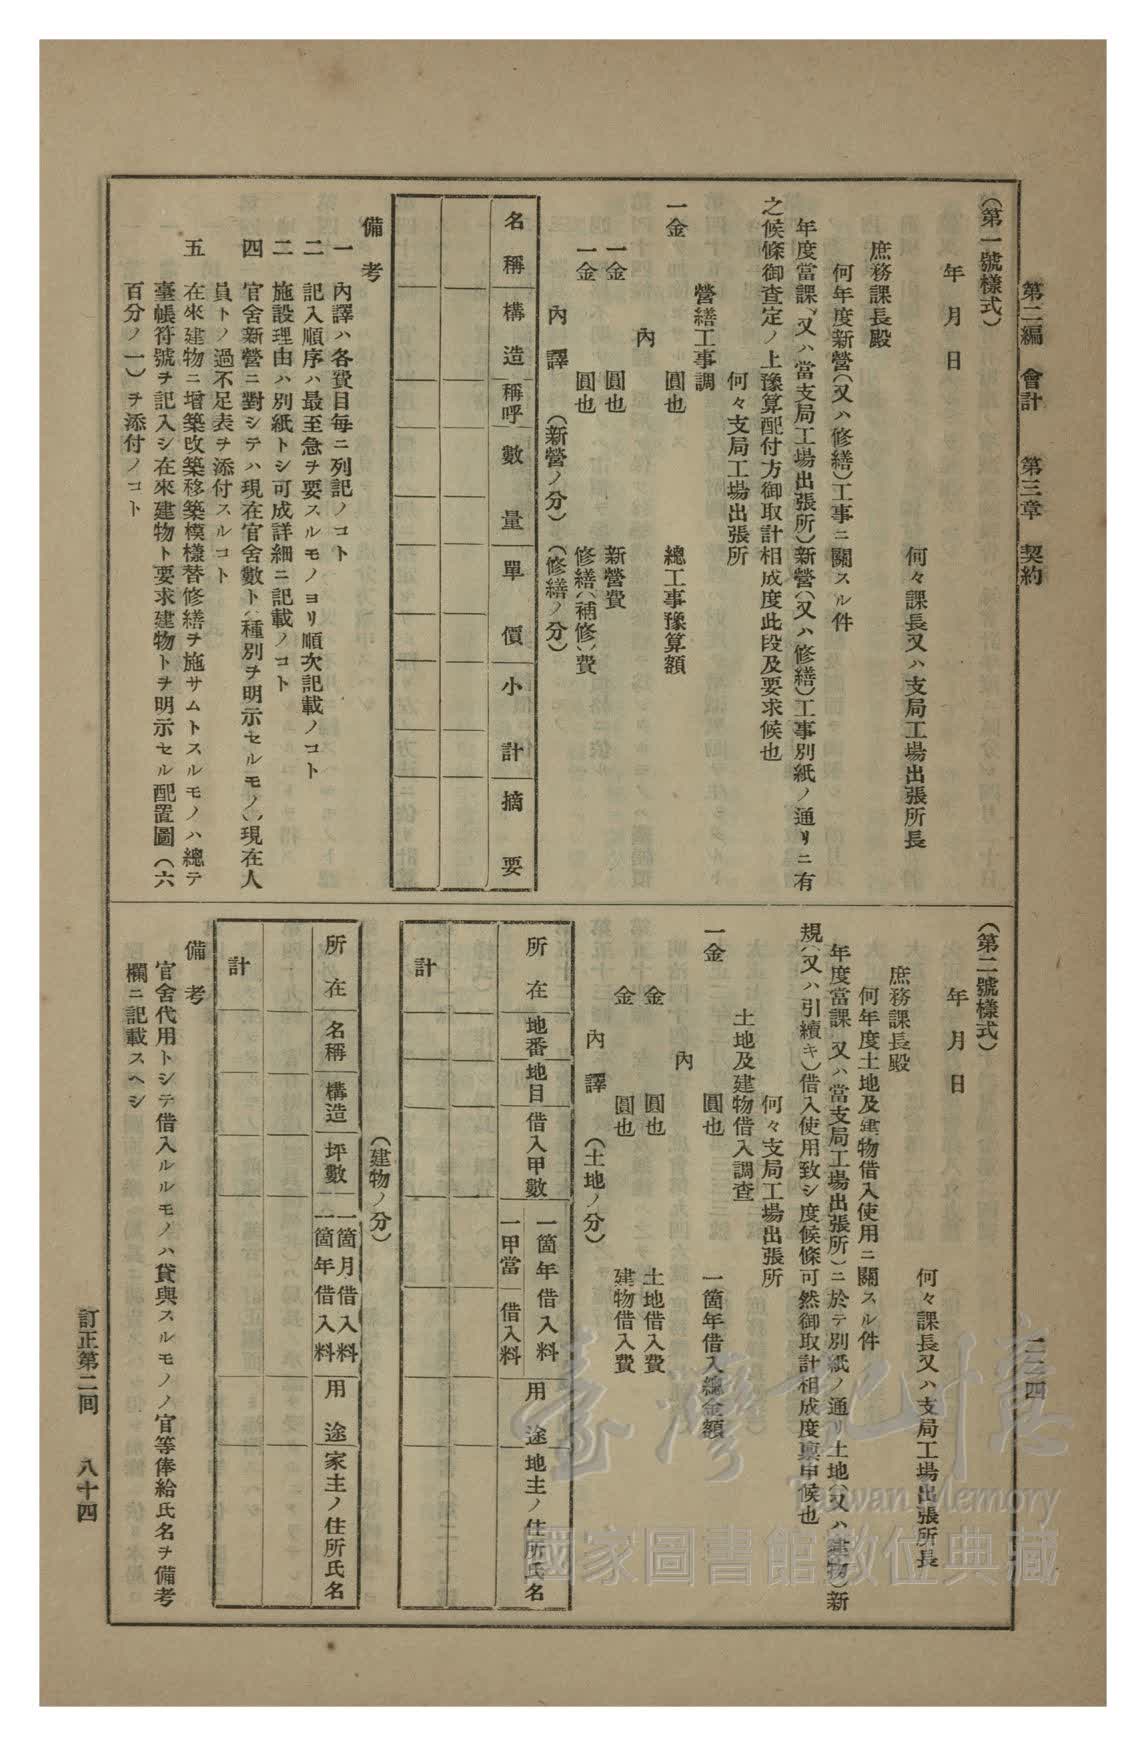 第二編　會計　第三章　契約
二三四
(第一號樣式)
年　月　日
何々課長又ハ支局工場出張所長
庶務課長殿
何年度新營(又ハ修繕)工事ニ關スル件
年度當課(又ハ當支局工場出張所)新營(又ハ修繕)工事別紙ノ通リニ有
之候條御査定ノ上豫算配付方御取計相成度此段及要求候也
何々支局工場出張所
營繕工事調
一金　圓也　總工事豫算額
內
一金　圓也　新營費
一金　圓也　修繕(補修)費
內譯　(新營ノ分)(修繕ノ分)
名稱　構造　稱呼　數量　單價　小計　摘要
備考
一　內譯ハ各費目每ニ列記ノコト
二　記入順序ハ最至急ヲ要スルモノヨリ順次記載ノコト
二　施設理由ハ別紙トシ可成詳細ニ記載ノコト
四　官舍新營ニ對シテハ現在官舍數ト(種別ヲ明示セルモノ)現在人
員トノ過不足表ヲ添付スルコト
五　在來建物ニ增築改築移築模樣替修繕ヲ施サムトスルモノハ總テ
臺帳符號ヲ記入シ在來建物ト要求建物トヲ明示セル配置圖(六
百分ノ一)ヲ添付ノコト
(第二號樣式)
年　月　日
何々課長又ハ支局工場出張所長
庶務課長殿
何年度土地及建物借入使用ニ關スル件
年度當課(又ハ當支局工場出張所)ニ於テ別紙ノ通リ土地(又ハ建物)新
規(又ハ引續キ)借入使用致シ度候條可然御取計相成度稟申候也
何々支局工場出張所
土地及建物借入調查
一金　圓也　一箇年借入總金額
內
金　圓也　土地借入費
金　圓也　建物借入費
內譯　(土地ノ分)
所在　地番　地目　借入甲數　一箇年借入料　一甲當借入料　用途　地主ノ住所氏名
計
(建物ノ分)
所在　名稱　構造　坪數　一箇月借入料　一箇年借入料　用途　家主ノ住所氏名
計
備考
官舍代用トシテ借入ルルモノハ貸與スルモノノ官等俸給氏名ヲ備考
欄ニ記載スヘシ
訂正第二囘　八十四
臺灣記憶
Taiwan Memory
國家圖書館數位典藏